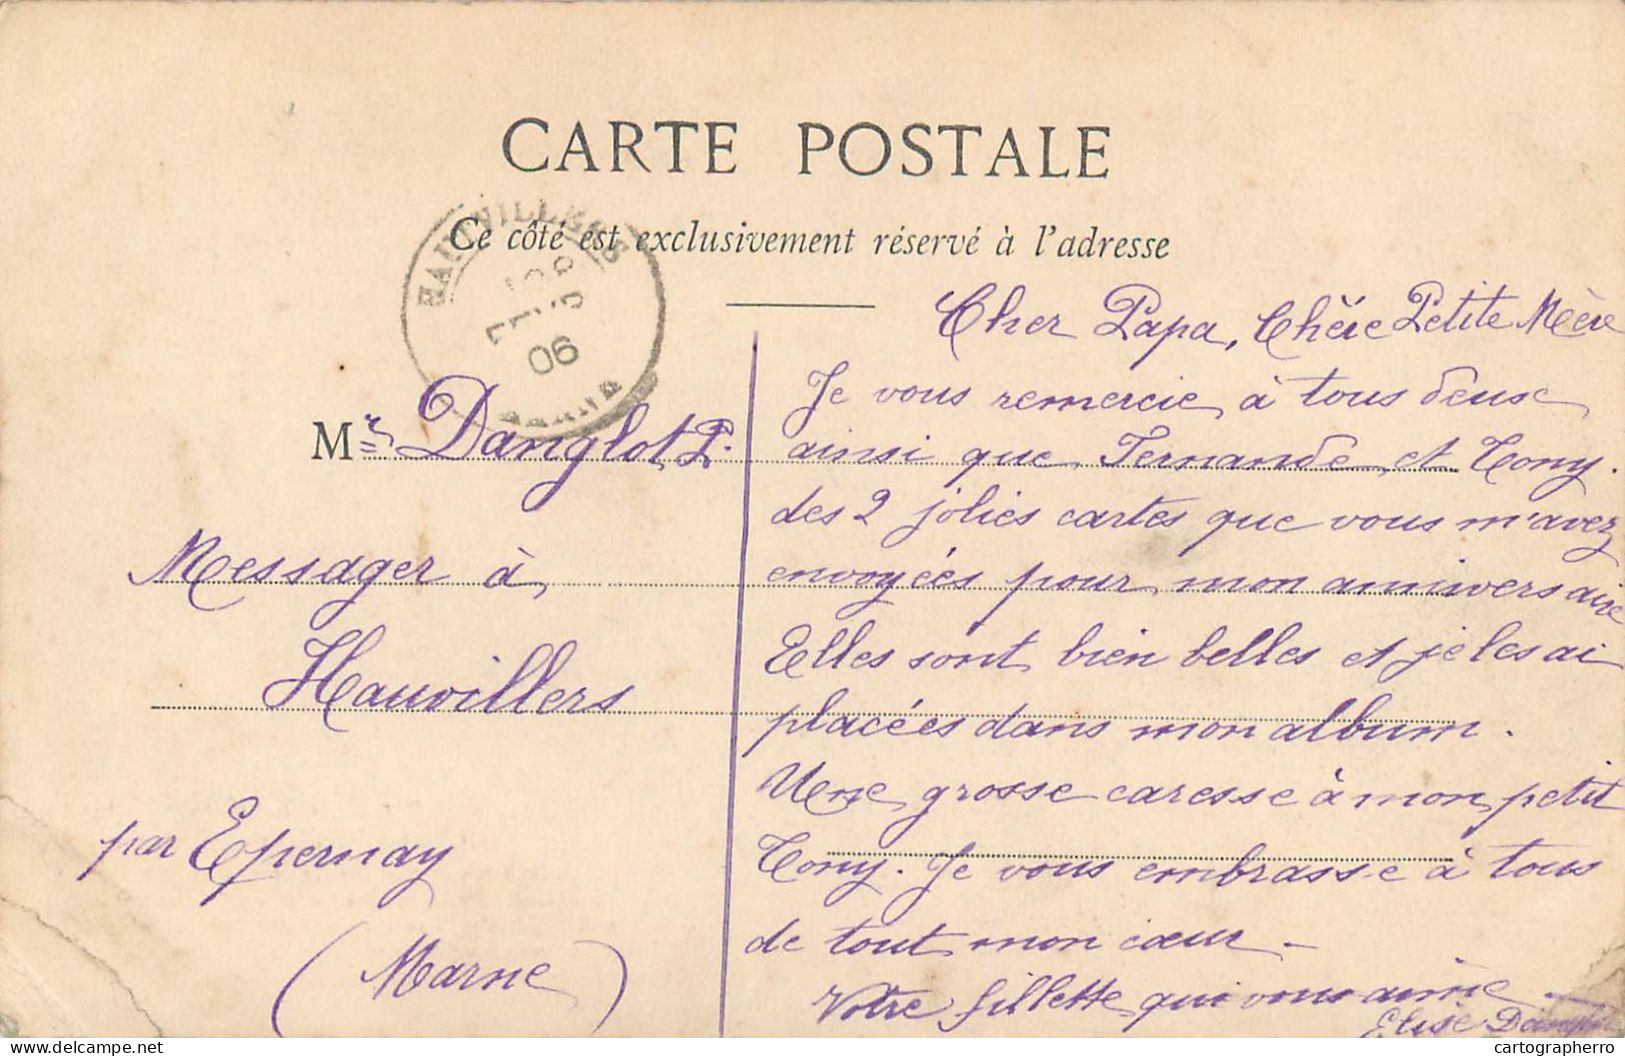 CARTE POSTALE
Ce côté est exclusivement réservé à l'adresse
HAUTVILLERS
06
MARNE
Mr Danglot P.
Messager à
Hauvillers
par Epernay
(Marne)
Cher Papa, Chère Petite Mère
Je vous remercie à tous deux
ainsi que Fernande et Tony.
des 2 jolies cartes que vous m'avez
envoyées pour mon anniversaire
Elles sont bien belles et je les ai
placées dans mon album.
Une grosse caresse à mon petit
Tony. Je vous embrasse à tous
de tout mon cœur -
Votre fillette qui vous aime.
Elise
cartographerro
www.delcampe.net